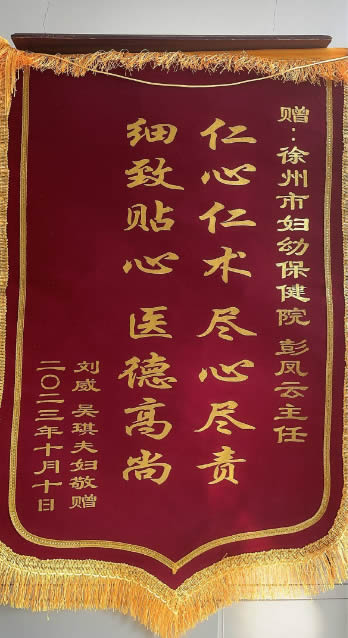 赠：徐州市妇幼保健院 彭凤云主任
仁心仁术 尽心尽责
细致贴心 医德高尚
刘威 吴琪夫妇敬赠
二〇二三年十月十日